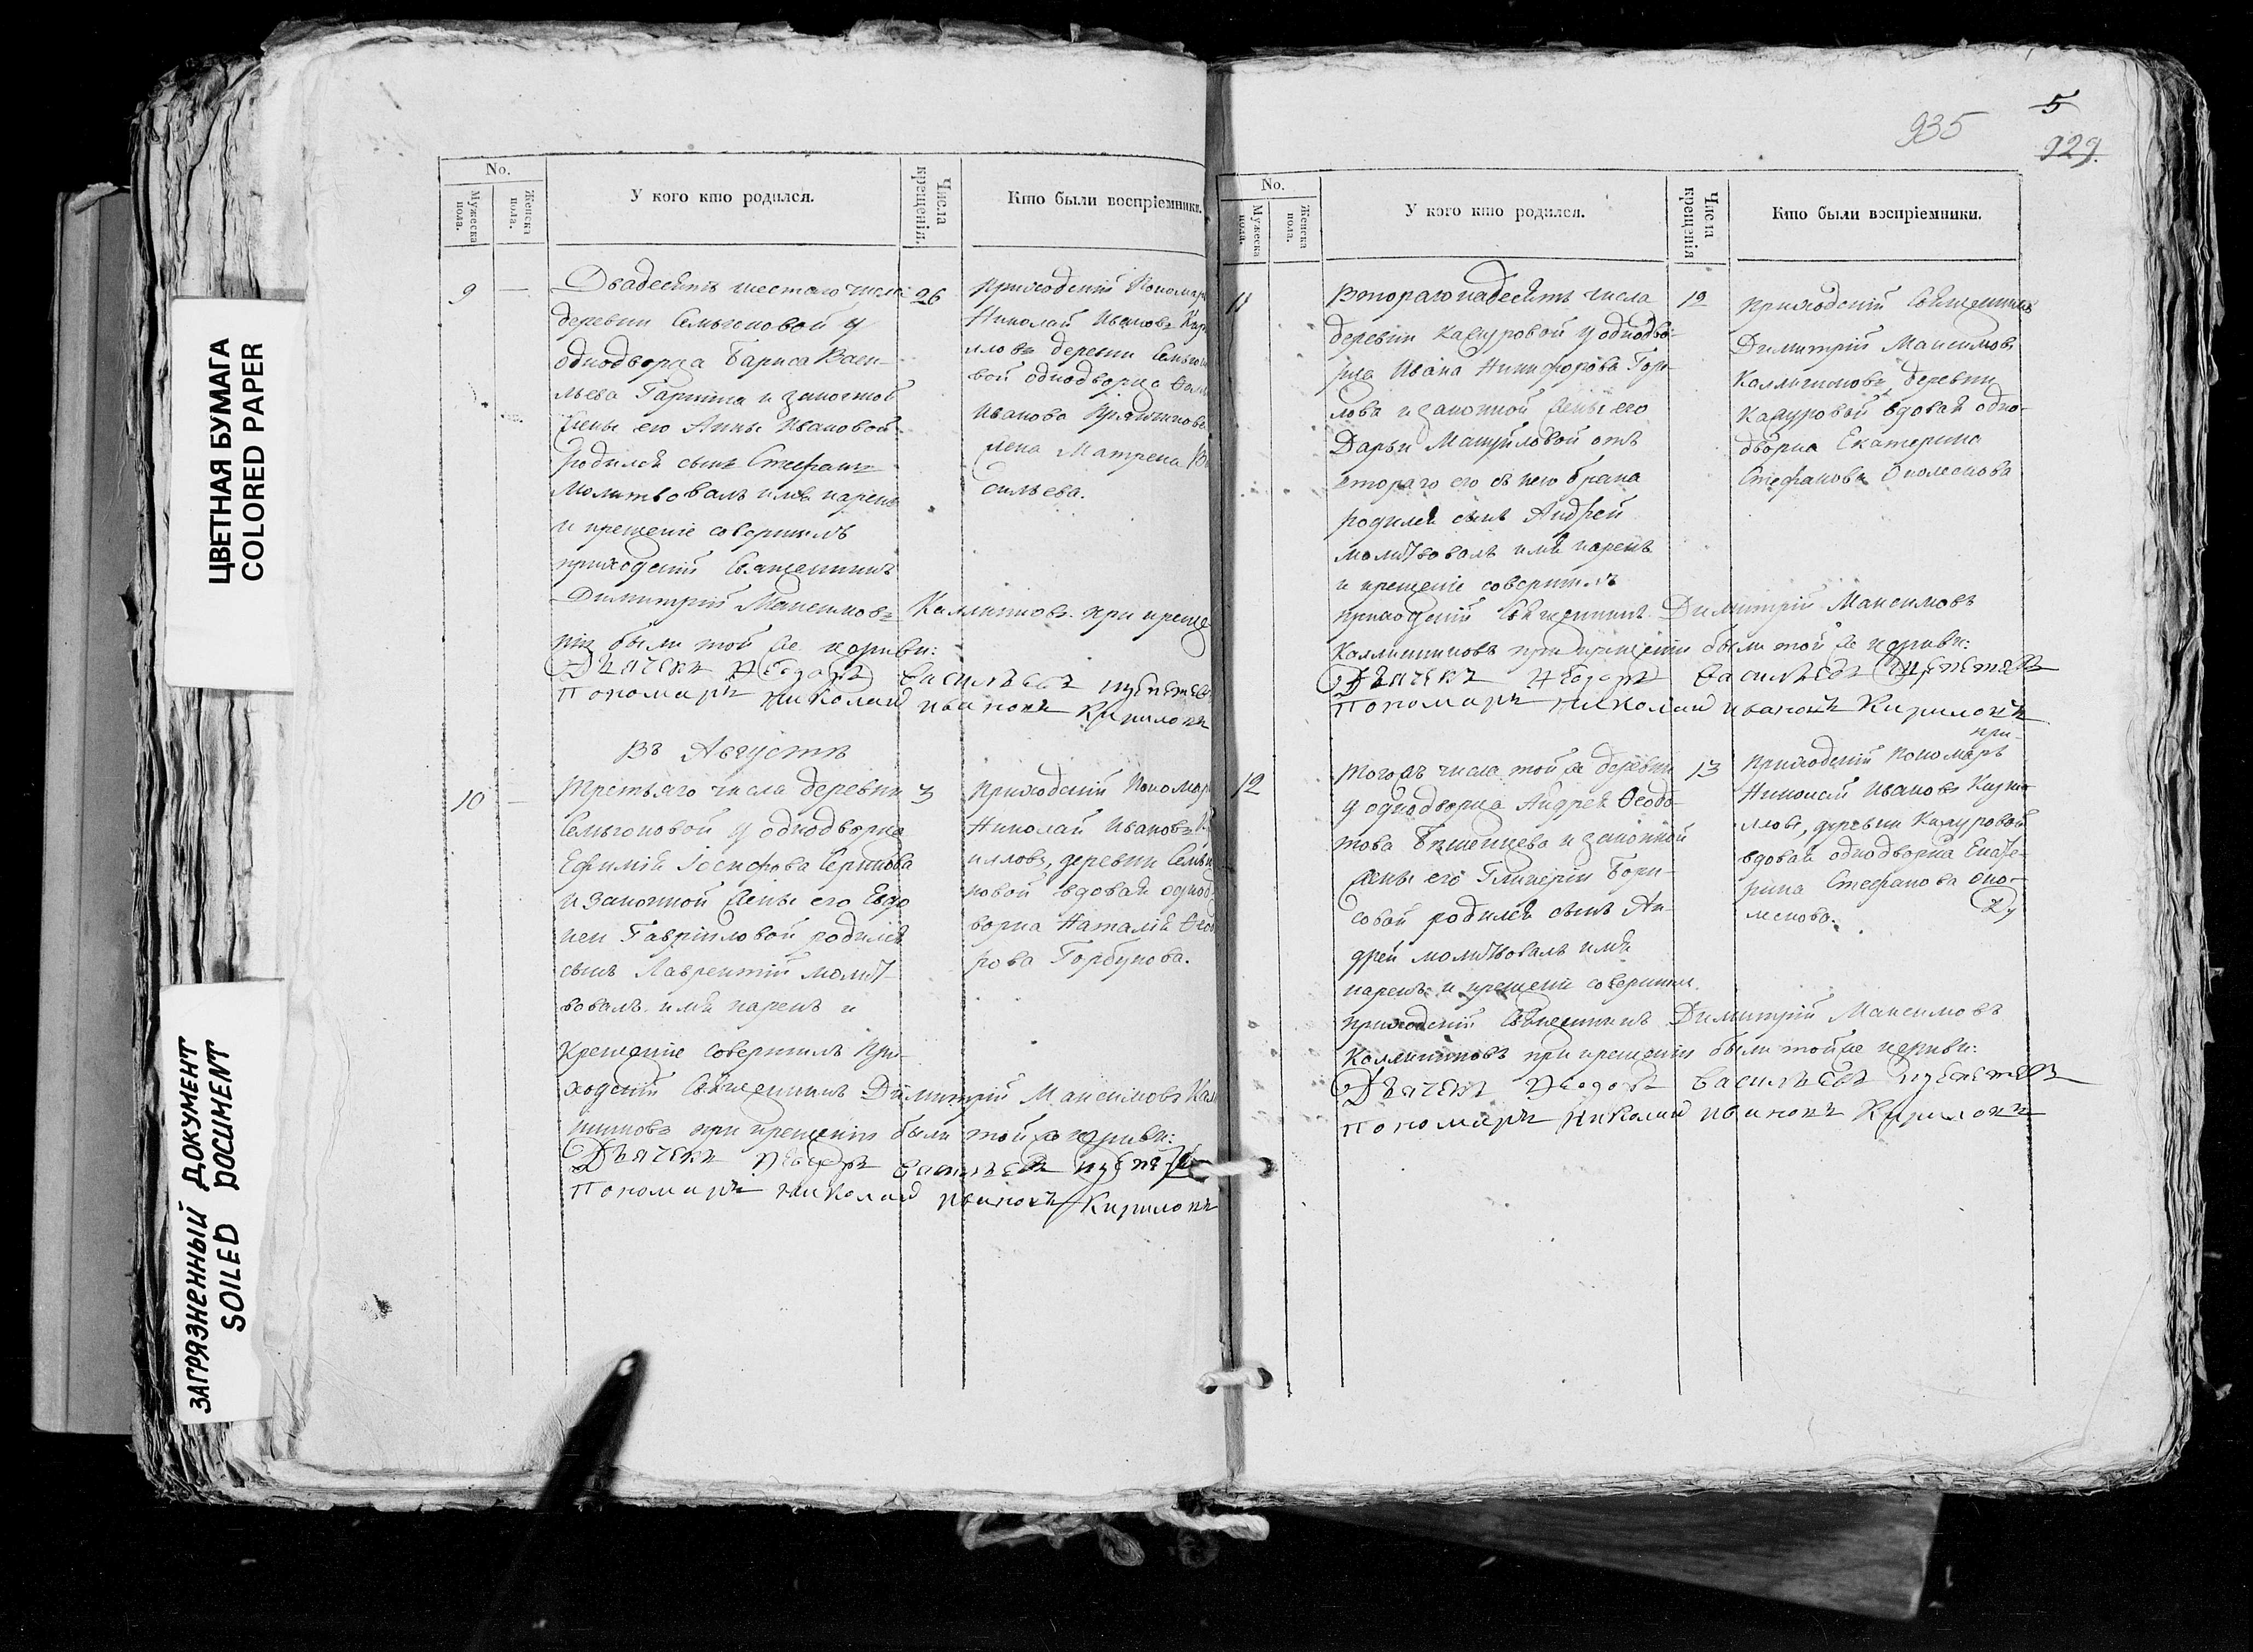 ЦВЕТНАЯ БУМАГА
COLORED PAPER
ЗАГРЯЗНЕННЫЙ ДОКУМЕНТ
SOILED DOCUMENT
No.
Мужеска пола.
Женска пола.
У кого кто родился.
Числа крещенія.
Кто были воспріемники.
9 —
Двадесять шестаго числа
деревни Семыкоповой у
однодворца Бориса Васи-
льева и законной
жены его Анны Ивановой
родился сынъ Стефанъ
молитвовалъ имя нарекъ
и крещеніе совершилъ
приходскій Священникъ
Димитрій Максимовъ при креще
ніи были той же церкви:
Дьячекъ Ѳеодоръ Васильевъ
Пономарь Николай Ивановъ Кириловъ
26
Приходскій Пономарь
Николай Ивановъ Кири
ловъ деревни
вой однодворца
Иванова
жена Матрена Ва
сильева.
Въ Августѣ
10 —
Третьяго числа деревни
у однодворца
Ефимія Іосифова
и законной жены его Евдо
кеи Гавріиловой родился
сынъ Лаврентій молит-
вовалъ имя нарекъ и
Крещеніе совершилъ При-
ходскій Священникъ Димитрій Максимовъ
при крещеніи были той же церкви:
Дьячекъ Ѳеодоръ Васильевъ
Пономарь Николай Ивановъ Кириловъ
3
Приходскій Пономарь
Николай Ивановъ
илловъ, деревни
новой вдовая однод
ворка Наталія Ѳеодо
рова Горбунова.
935
5
929.
No.
Мужеска пола.
Женска пола.
У кого кто родился.
Числа крещенія
Кто были воспріемники.
11
Втораго надесять числа
деревни Кащуровой у однодво-
рца Ивана Никифорова Гор-
лова и законной жены его
Дарьи Мануйловой отъ
втораго его съ нею брака
родился сынъ Андрей
молитвовалъ имя нарекъ
и крещеніе совершилъ
приходскій Священникъ Димитрій Максимовъ
при крещеніи были той же церкви:
Дьячекъ Ѳеодоръ Васильевъ
Пономарь Николай Ивановъ Кириловъ
12
Приходскій Священникъ
Димитрій Максимовъ
деревни
Кащуровой вдовая одно-
дворка Екатерина
Стефанова
12
Того жъ числа той же деревни
у однодворца Андрея Ѳеодо-
това и законной
жены его Гликеріи Бори-
совой родился сынъ Ан-
дрей молитвовалъ имя
нарекъ и крещеніе совершилъ
приходскій Священникъ Димитрій Максимовъ
при крещеніи были той же церкви:
Дьячекъ Ѳеодоръ Васильевъ
Пономарь Николай Ивановъ Кириловъ
13
при-
Приходскій Пономарь
Николай Ивановъ Кири-
лловъ, деревни Кащуровой
вдовая однодворка Екате-
рина Стефанова